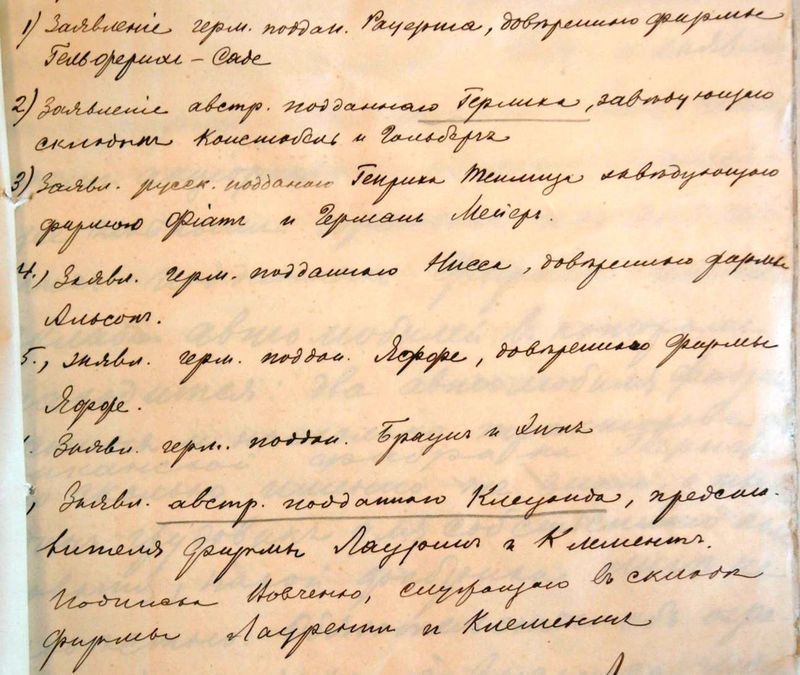 1) Заявленіе герм. поддан. Рауерта, довѣреннаго фирмы
Гельферихъ – Саде
2) Заявленіе австр. подданнаго Герлика, завѣдующаго
складомъ Констабель и Гольбергъ
3) Заявл. русск. подданаго Генриха завѣдующаго
фирмою Фіатъ и Германъ Мейеръ.
4., Заявл. герм. подданнаго Нисса, довѣреннаго фирмы
Альсопъ.
5., заявл. герм. поддан. Яффе, довѣреннаго фирмы
Яффе.
Заявл. герм. поддан. Браунъ и
, Заявл. австр. подданнаго Клецанда, предста-
вителя фирмы Лауринъ и Клементъ.
подписка Новченко, служащаго въ складѣ
фирмы Лауренти и Клеменсъ